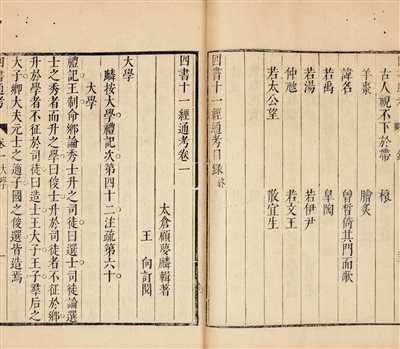 古人視不下於帶 檖
羊棗 膾炙
諱名 曾晳倚其門而歌
若禹 皐陶
若湯 若伊尹
仲虺 若文王
若太公望 散宜生
四書十一經通考目錄終
四書十一經通考卷一
太倉顧夢麟輯著
王 向訂閱
大學
麟按大學禮記次第四十二注疏第六十
大學
禮記王制命鄉論秀士升之司徒曰選士司徒論選
士之秀者而升之學曰俊士升於司徒者不征於鄉
升於學者不征於司徒曰造士王大子王子羣后之
大子卿大夫元士之適子國之俊選皆造焉
四書通考 卷一 大學